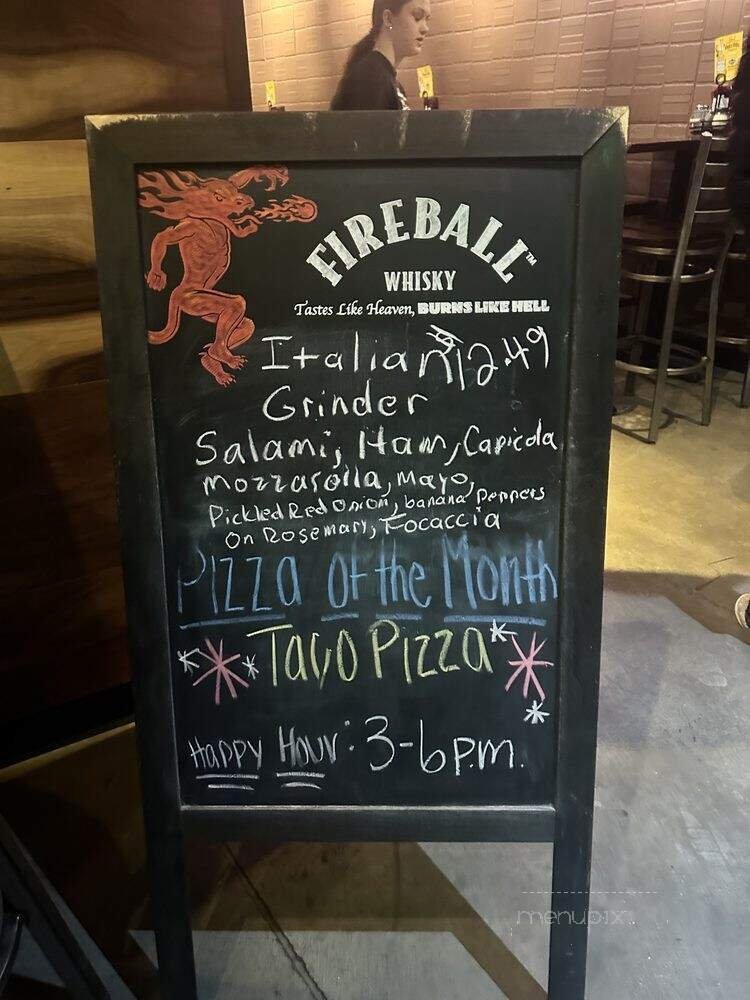 FIREBALL™
WHISKY
Tastes Like Heaven, BURNS LIKE HELL
Italian 12.49
Grinder
Salami, Ham, Capicola
Mozzarella, Mayo,
Pickled Red Onion, banana Peppers
On Rosemary, Focaccia
Pizza of the Month
Taco Pizza
Happy Hour: 3-6 p.m.
menupix